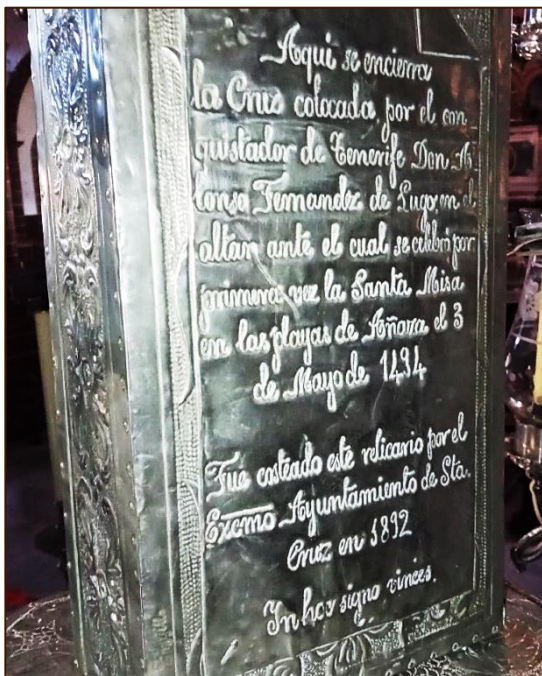 Aqui se encierra
la Cruz colocada por el con
quistador de Tenerife Don A
lonso Fernandez de Lugo, en el
altar ante el cual se celebró por
primera vez la Santa Misa
en las playas de Añaza el 3
de Mayo de 1494
Fué costeado este relicario por el
Excmo Ayuntamiento de Sta.
Cruz en 1892
In hoc signo vinces.